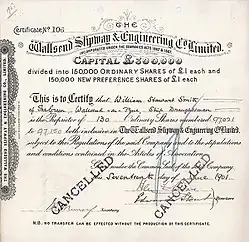 Certificate No 106
THE
Wallsend Slipway & Engineering Co Limited.
INCORPORATED UNDER THE COMPANIES ACTS 1862 TO 1867
CAPITAL £300,000
divided into 150,000 ORDINARY SHARES of £1 each and
150,000 NEW PREFERENCE SHARES of £1 each
This is to Certify that William Simpson Smith
of Wallsend on Tyne Draughtsman
is the Proprietor of 130 Ordinary Shares numbered 97021
to 97150 both inclusive in The Wallsend Slipway & Engineering Co Limited
subject to the Regulations of the said Company and to the stipulations
and conditions contained in the Articles of Association.
Given under the Common Seal of the said Company
the Seventeenth day of June 1901.
CANCELLED
CANCELLED
Secretary
N.B. NO TRANSFER CAN BE EFFECTED WITHOUT THE PRODUCTION OF THIS CERTIFICATE